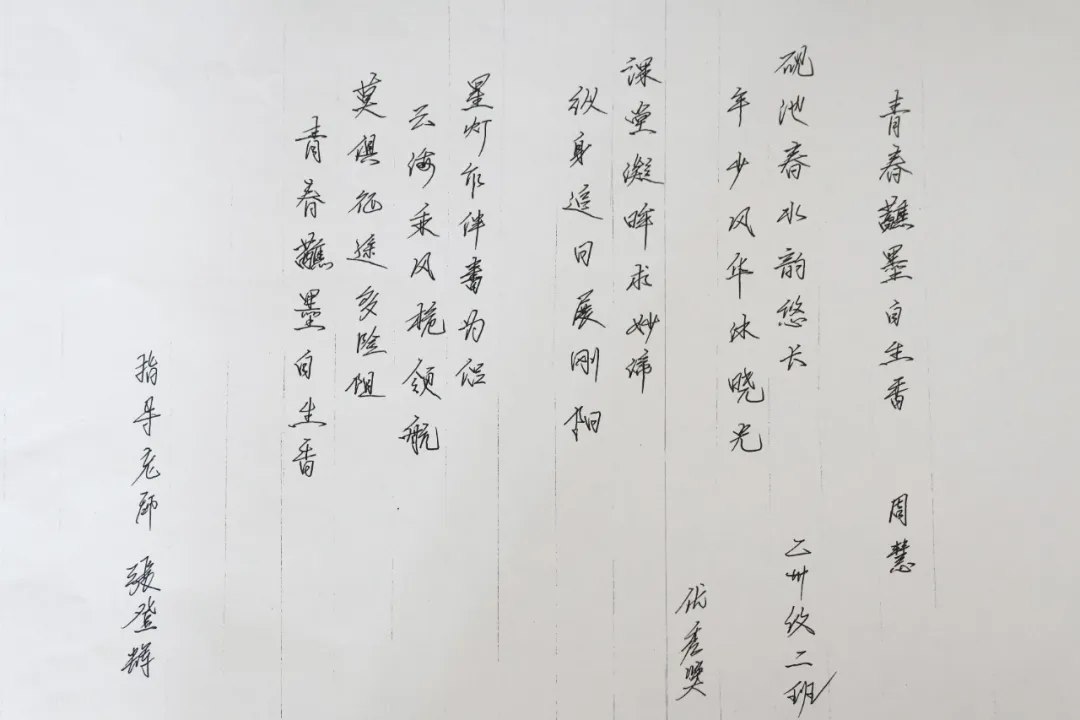 青春蘸墨自生香 周慧
砚池春水韵悠长 乙卅级二班
年少风华沐晓光
优秀奖
课堂凝眸求妙谛
纵身追日展刚阳
星灯作伴书为侣
云海乘风桅领航
莫惧征途多险阻
青春蘸墨自生香
指导老师 張登辉